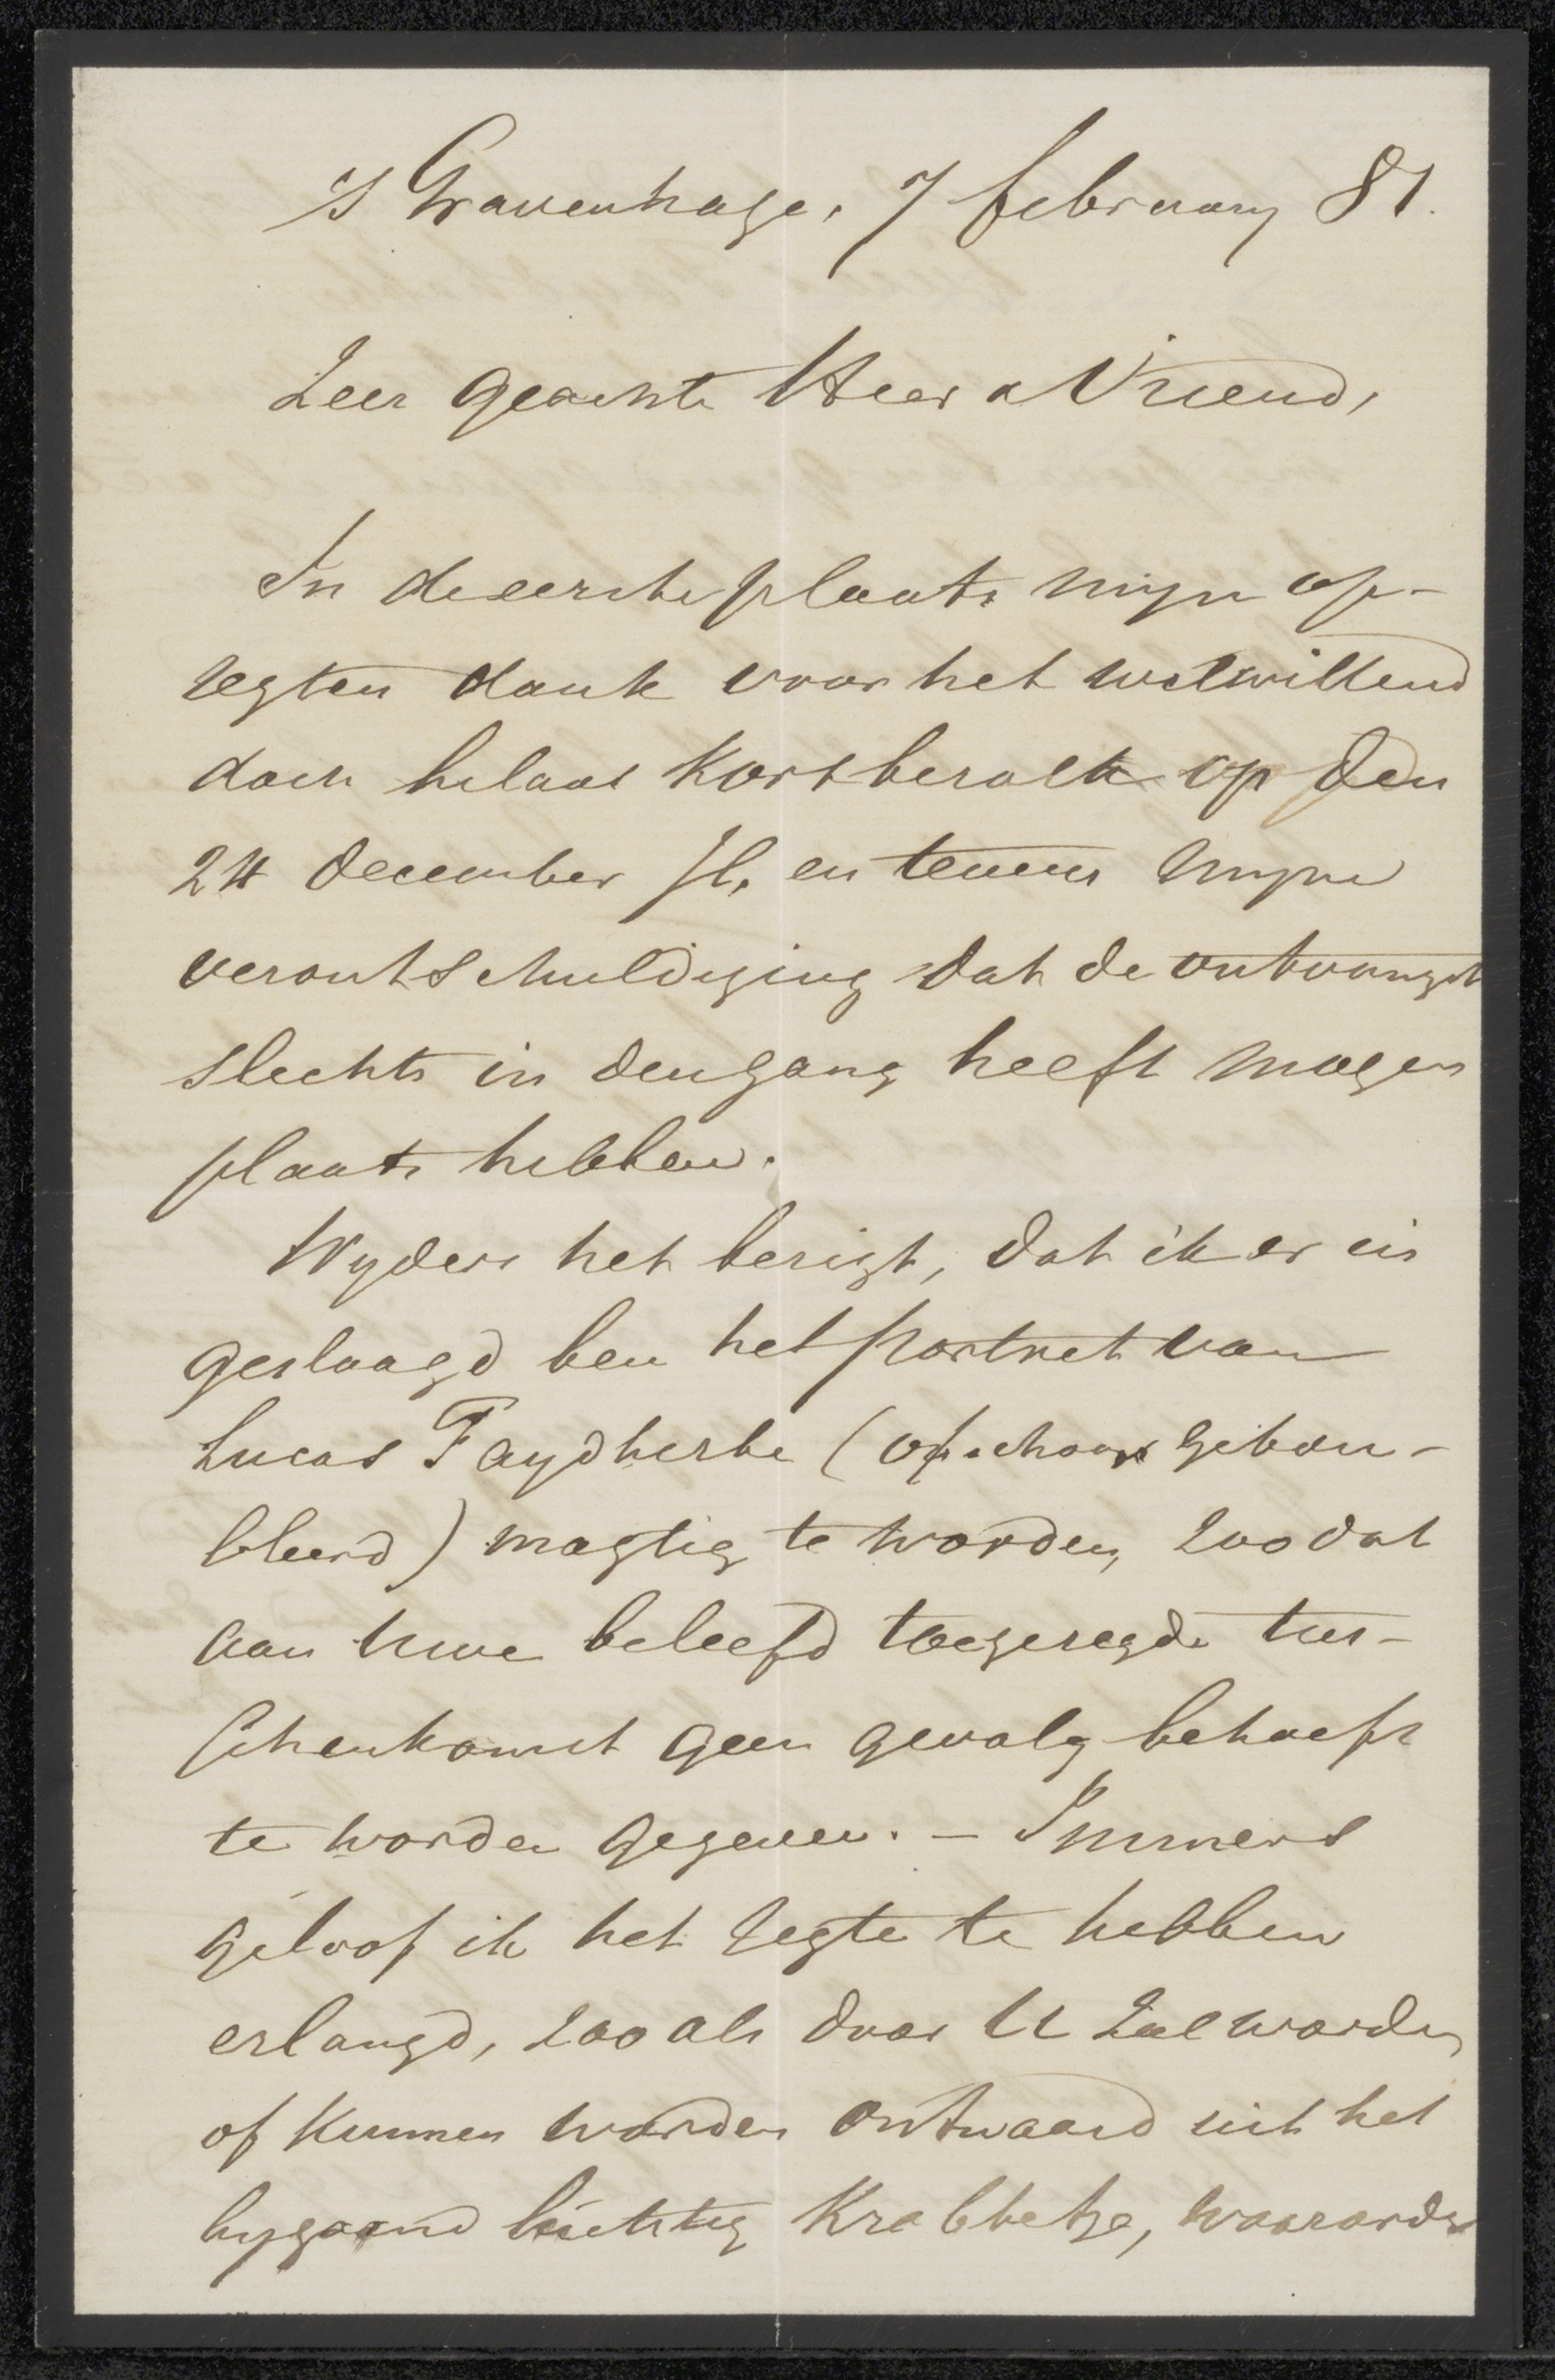 'S Gravenhage, 7 february 81.
Zeer geachte Heer & Vriend,
In de eerste plaats mijn op-
regten dank voor het welwillend
doch helaas kort bezoek op den
24 december jl. en tevens mijne
verontschuldiging dat de ontvangst
slechts in den gang heeft mogen
plaats hebben.
Wyders het berigt, dat ik er in
geslaagd ben het portret van
Lucas Faydherbe (opschoon gebou-
bleerd) magtig te worden, zoo dat
aan Uwe beleefd toegezegde tus-
schenkomst geen gevolg behoeft
te worden gegeven. – Immers
geloof ik het regte te hebben
erlangd, zoo als door U zal worden
of kunnen worden ontwaard uit het
bygaand luchtig Krabbetje, waaronder